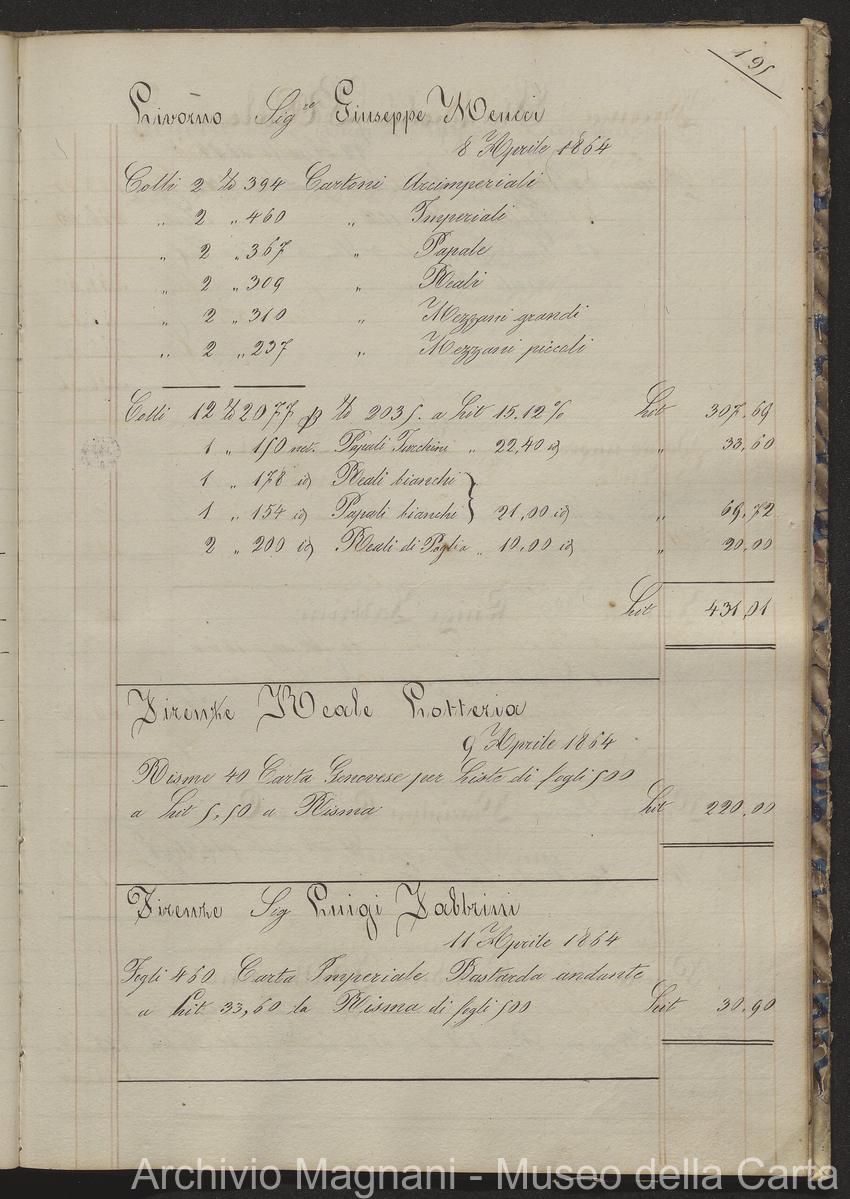 195
Livorno Sig.re Giuseppe Meucci
8 Aprile 1864
Colli 2 lb 394 Cartoni Arcimperiali
„ 2 „ 460 „ Imperiali
„ 2 „ 367 „ Papale
„ 2 „ 309 „ Reali
„ 2 „ 310 „ Mezzani grandi
„ 2 „ 237 „ Mezzani piccoli
Colli 12 lb 2077 p lb 2035. a Lit 15.12 % Lit 307.69
1 „ 150 net. Papali Turchini „ 22,40 id „ 33.60
1 „ 178 id Reali bianchi „
1 „ 154 id Papali bianchi } 21,00 id „ 69.72
2 „ 200 id Reali di Paglia „ 10.00 id „ 20.00
Lit 431,01
Firenze Reale Lotteria
9 Aprile 1864
Risme 40 Carta Genovese per Liste di fogli 500
a Lit 5,50 a Risma Lit 220.00
Firenze Sig Luigi Fabbrini
11 Aprile 1864
Fogli 460 Carta Imperiale Bastarda andante
a Lit 33,60 la Risma di fogli 500 Lit 30.90
Archivio Magnani - Museo della Carta